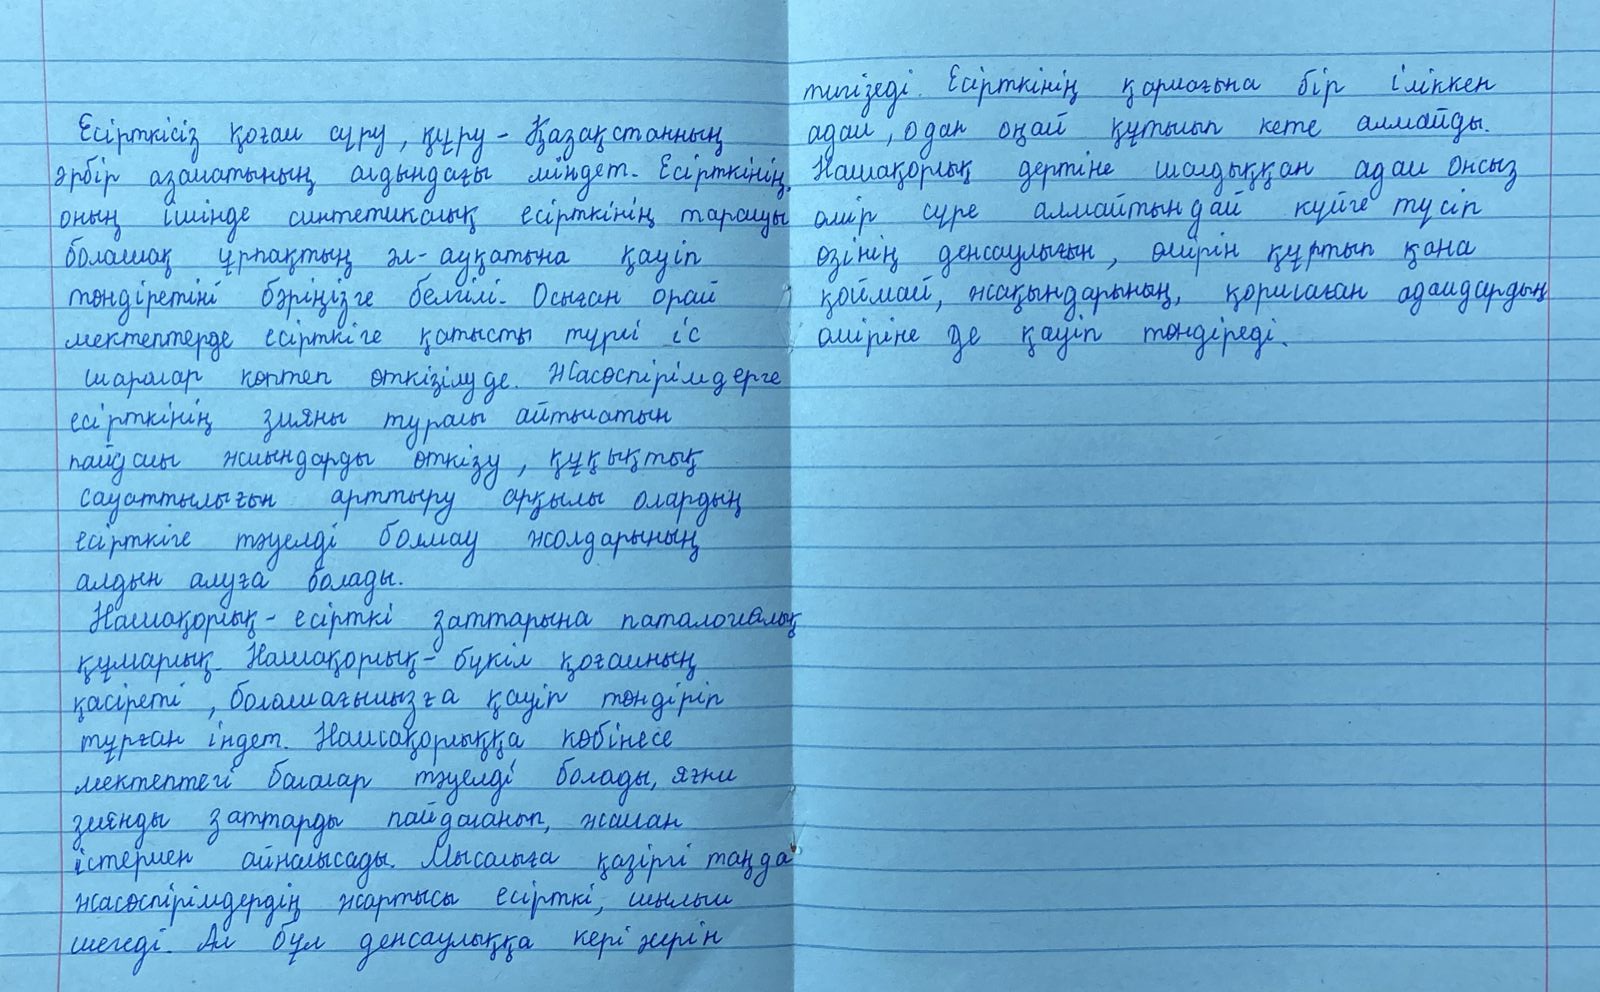 Есірткісіз қоғам сүру, құру - Қазақстанның
әрбір азаматының алдындағы міндет. Есірткінің,
оның ішінде синтетикалық есірткінің таралуы
болашақ ұрпақтың әл-ауқатына қауіп
төндіретіні бәріңізге белгілі. Осыған орай
мектептерде есірткіге қатысты түрлі іс
шаралар көптеп өткізілуде. Жасөспірімдерге
есірткінің зияны туралы айтылатын
пайдалы жиындарды өткізу, құқықтық
сауаттылығын арттыру арқылы олардың
есірткіге тәуелді болмау жолдарының
алдын алуға болады.
Нашақорлық - есірткі заттарына паталогиялық
құмарлық. Нашақорлық - бүкіл қоғамның
қасіреті, болашағымызға қауіп төндіріп
тұрған індет. Нашақорлыққа көбінесе
мектептегі балалар тәуелді болады, яғни
зиянды заттарды пайдаланып, жаман
істермен айналысады. Мысалыға қазіргі таңда
жасөспірімдердің жартысы есірткі, шылым
шегеді. Ал бұл денсаулыққа кері әсерін
тигізеді. Есірткінің қармағына бір іліккен
адам, одан оңай құтылып кете алмайды.
Нашақорлық дертіне шалдыққан адам онсыз
өмір сүре алмайтындай күйге түсіп
өзінің денсаулығын, өмірін құртып қана
қоймай, жақындарының, қоршаған адамдардың
өміріне де қауіп төндіреді.